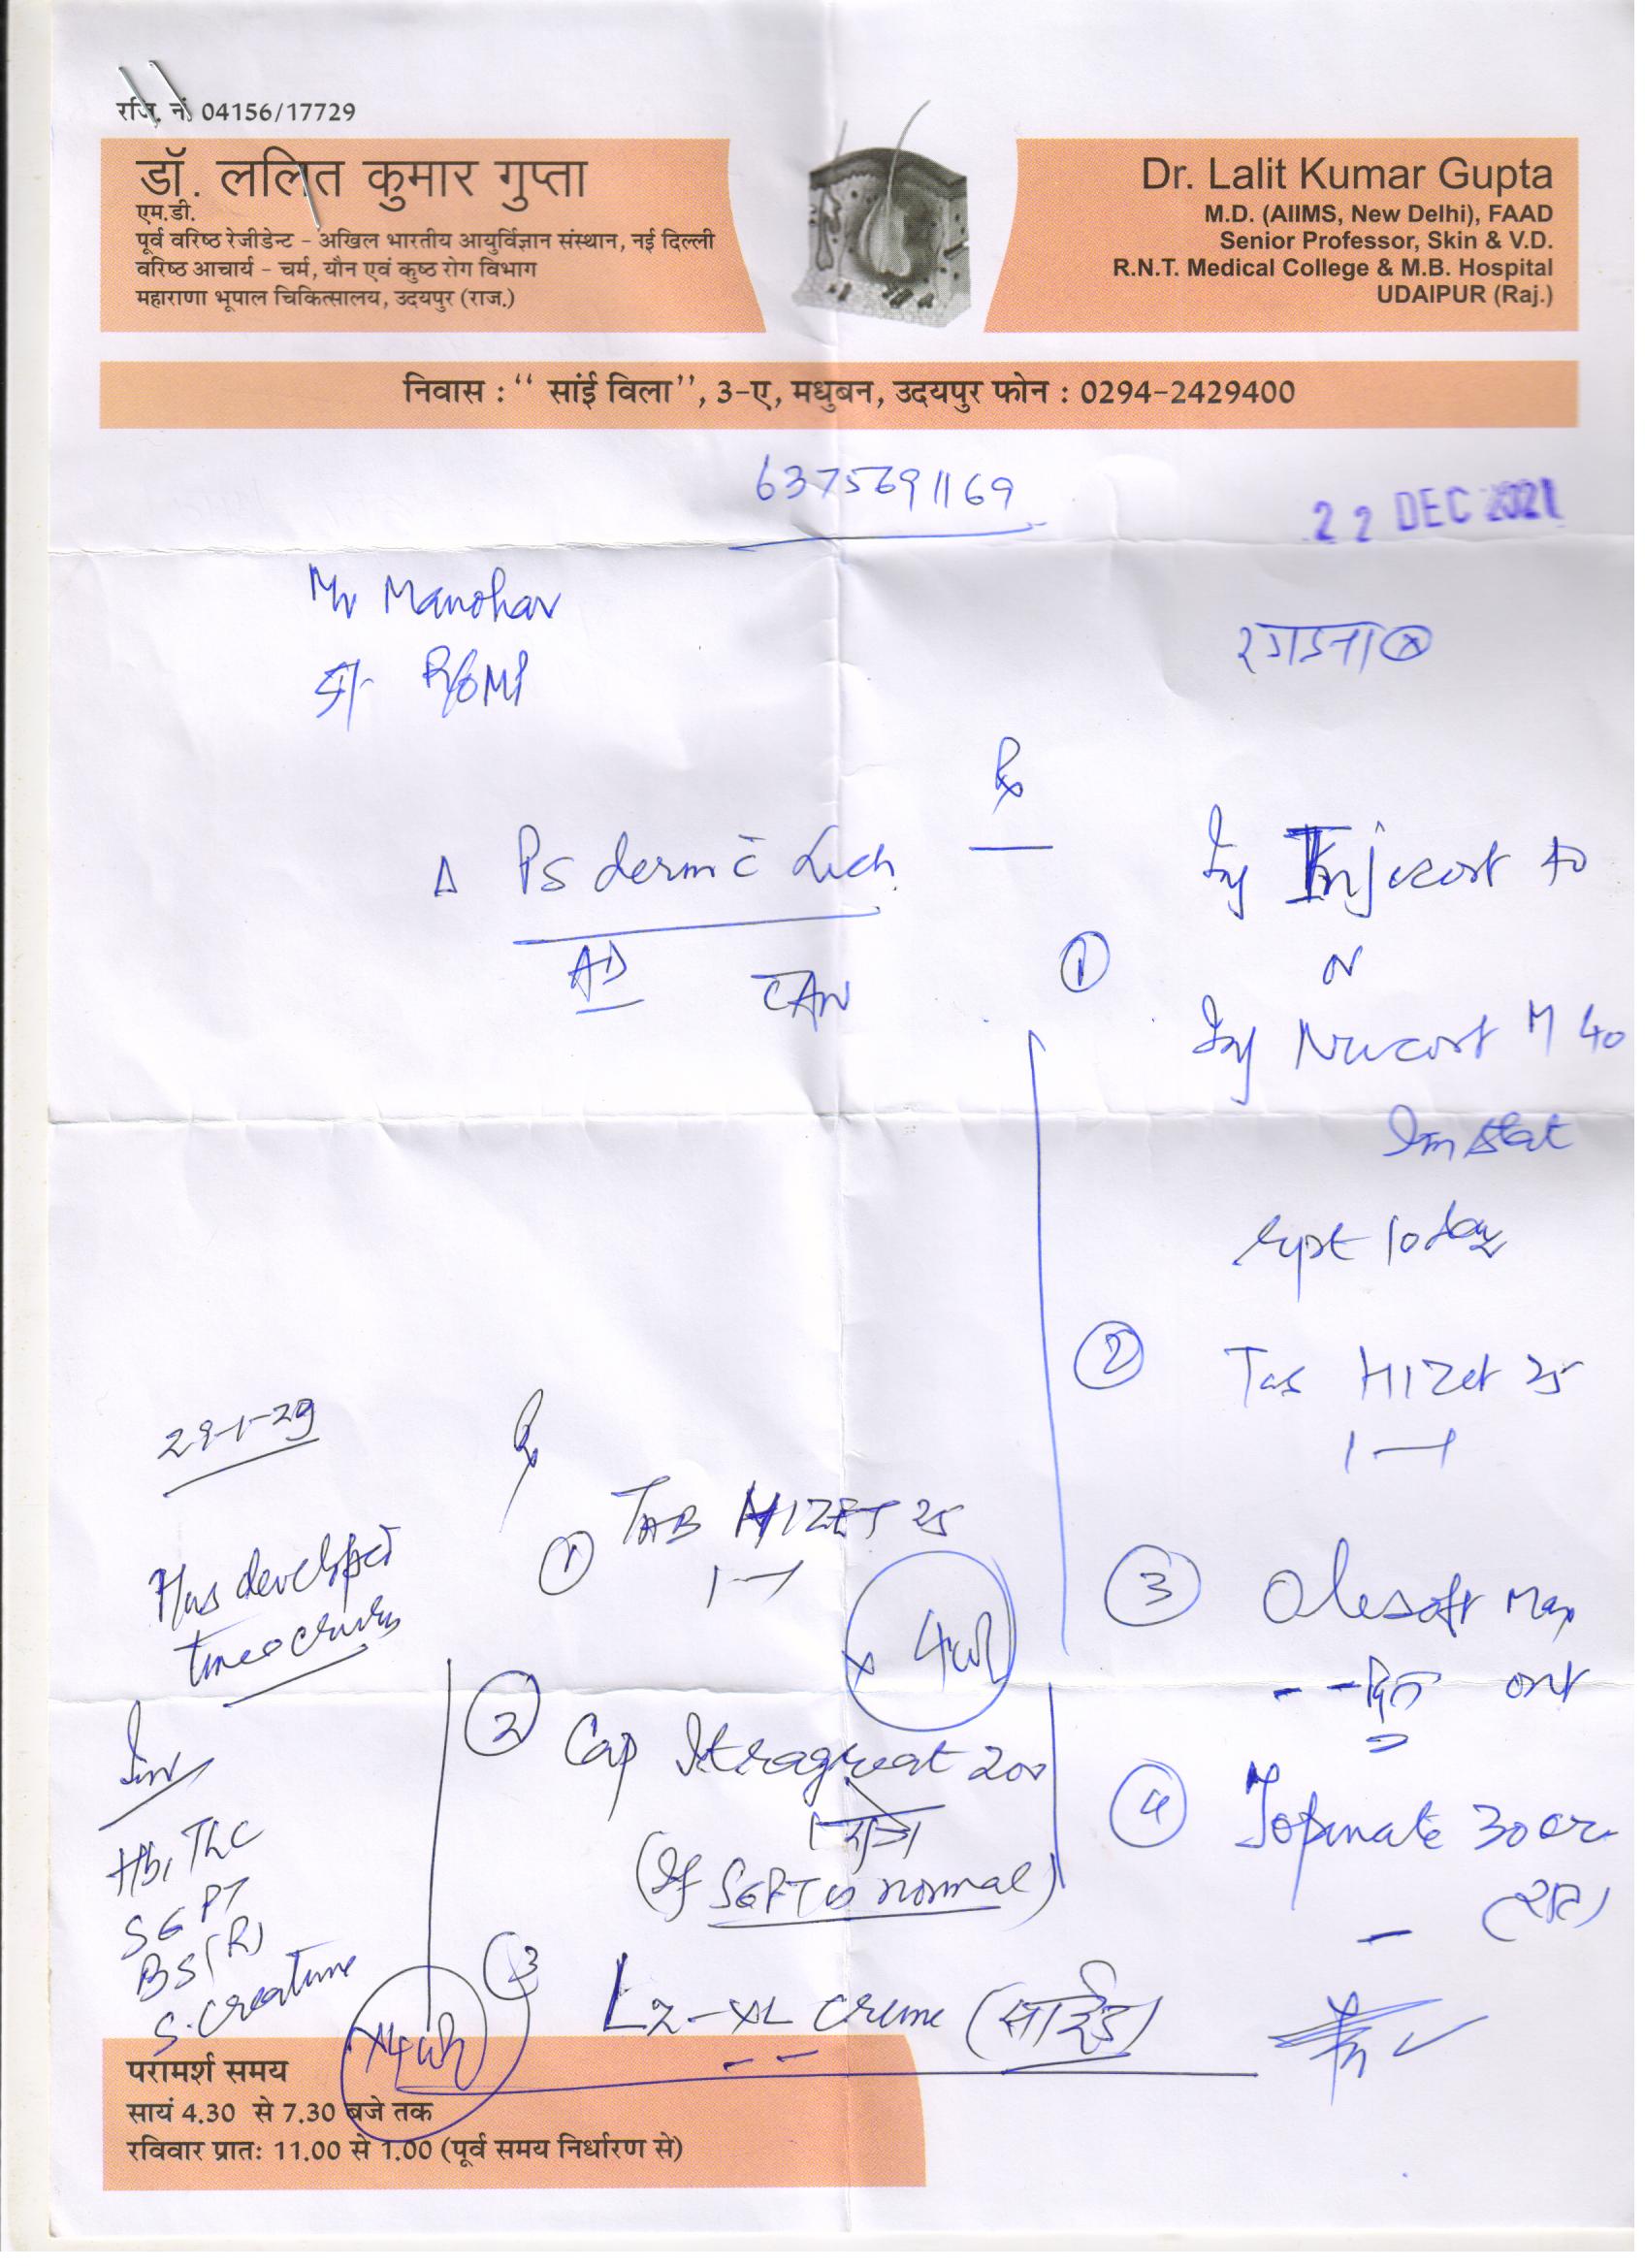 रजि. नं 04156/17729
डॉ. ललित कुमार गुप्ता
एम.डी.
पूर्व वरिष्ठ रेजीडेन्ट - अखिल भारतीय आयुर्विज्ञान संस्थान, नई दिल्ली
वरिष्ठ आचार्य - चर्म, यौन एवं कुष्ठ रोग विभाग
महाराणा भूपाल चिकित्सालय, उदयपुर (राज.)
Dr. Lalit Kumar Gupta
M.D. (AIIMS, New Delhi), FAAD
Senior Professor, Skin & V.D.
R.N.T. Medical College & M.B. Hospital
UDAIPUR (Raj.)
निवास : “ सांई विला”, 3-ए, मधुबन, उदयपुर फोन : 0294-2429400
6375691169
22 DEC 2021
Mr Manohar
रगडना
Δ Ps derm c̄ Lich
AD
Rx
①
Inj Injecort 40
or
Inj Nucort M 40
Im stat
rept 10 day
② Tab HIZet 25
1-1
③ Olesoft Max
④ Topinate 30 gr
(रात)
Has developed
Rx
① TAB HIZET 25
1-1
x 4 wk
② Cap Itragreat 200
(If SGPT is normal)
③ Lz-XL creme (साईड)
Inv
Hb, TLC
SGPT
BS (R)
S. Creatinine
x4wk
परामर्श समय
सायं 4.30 से 7.30 बजे तक
रविवार प्रातः 11.00 से 1.00 (पूर्व समय निर्धारण से)